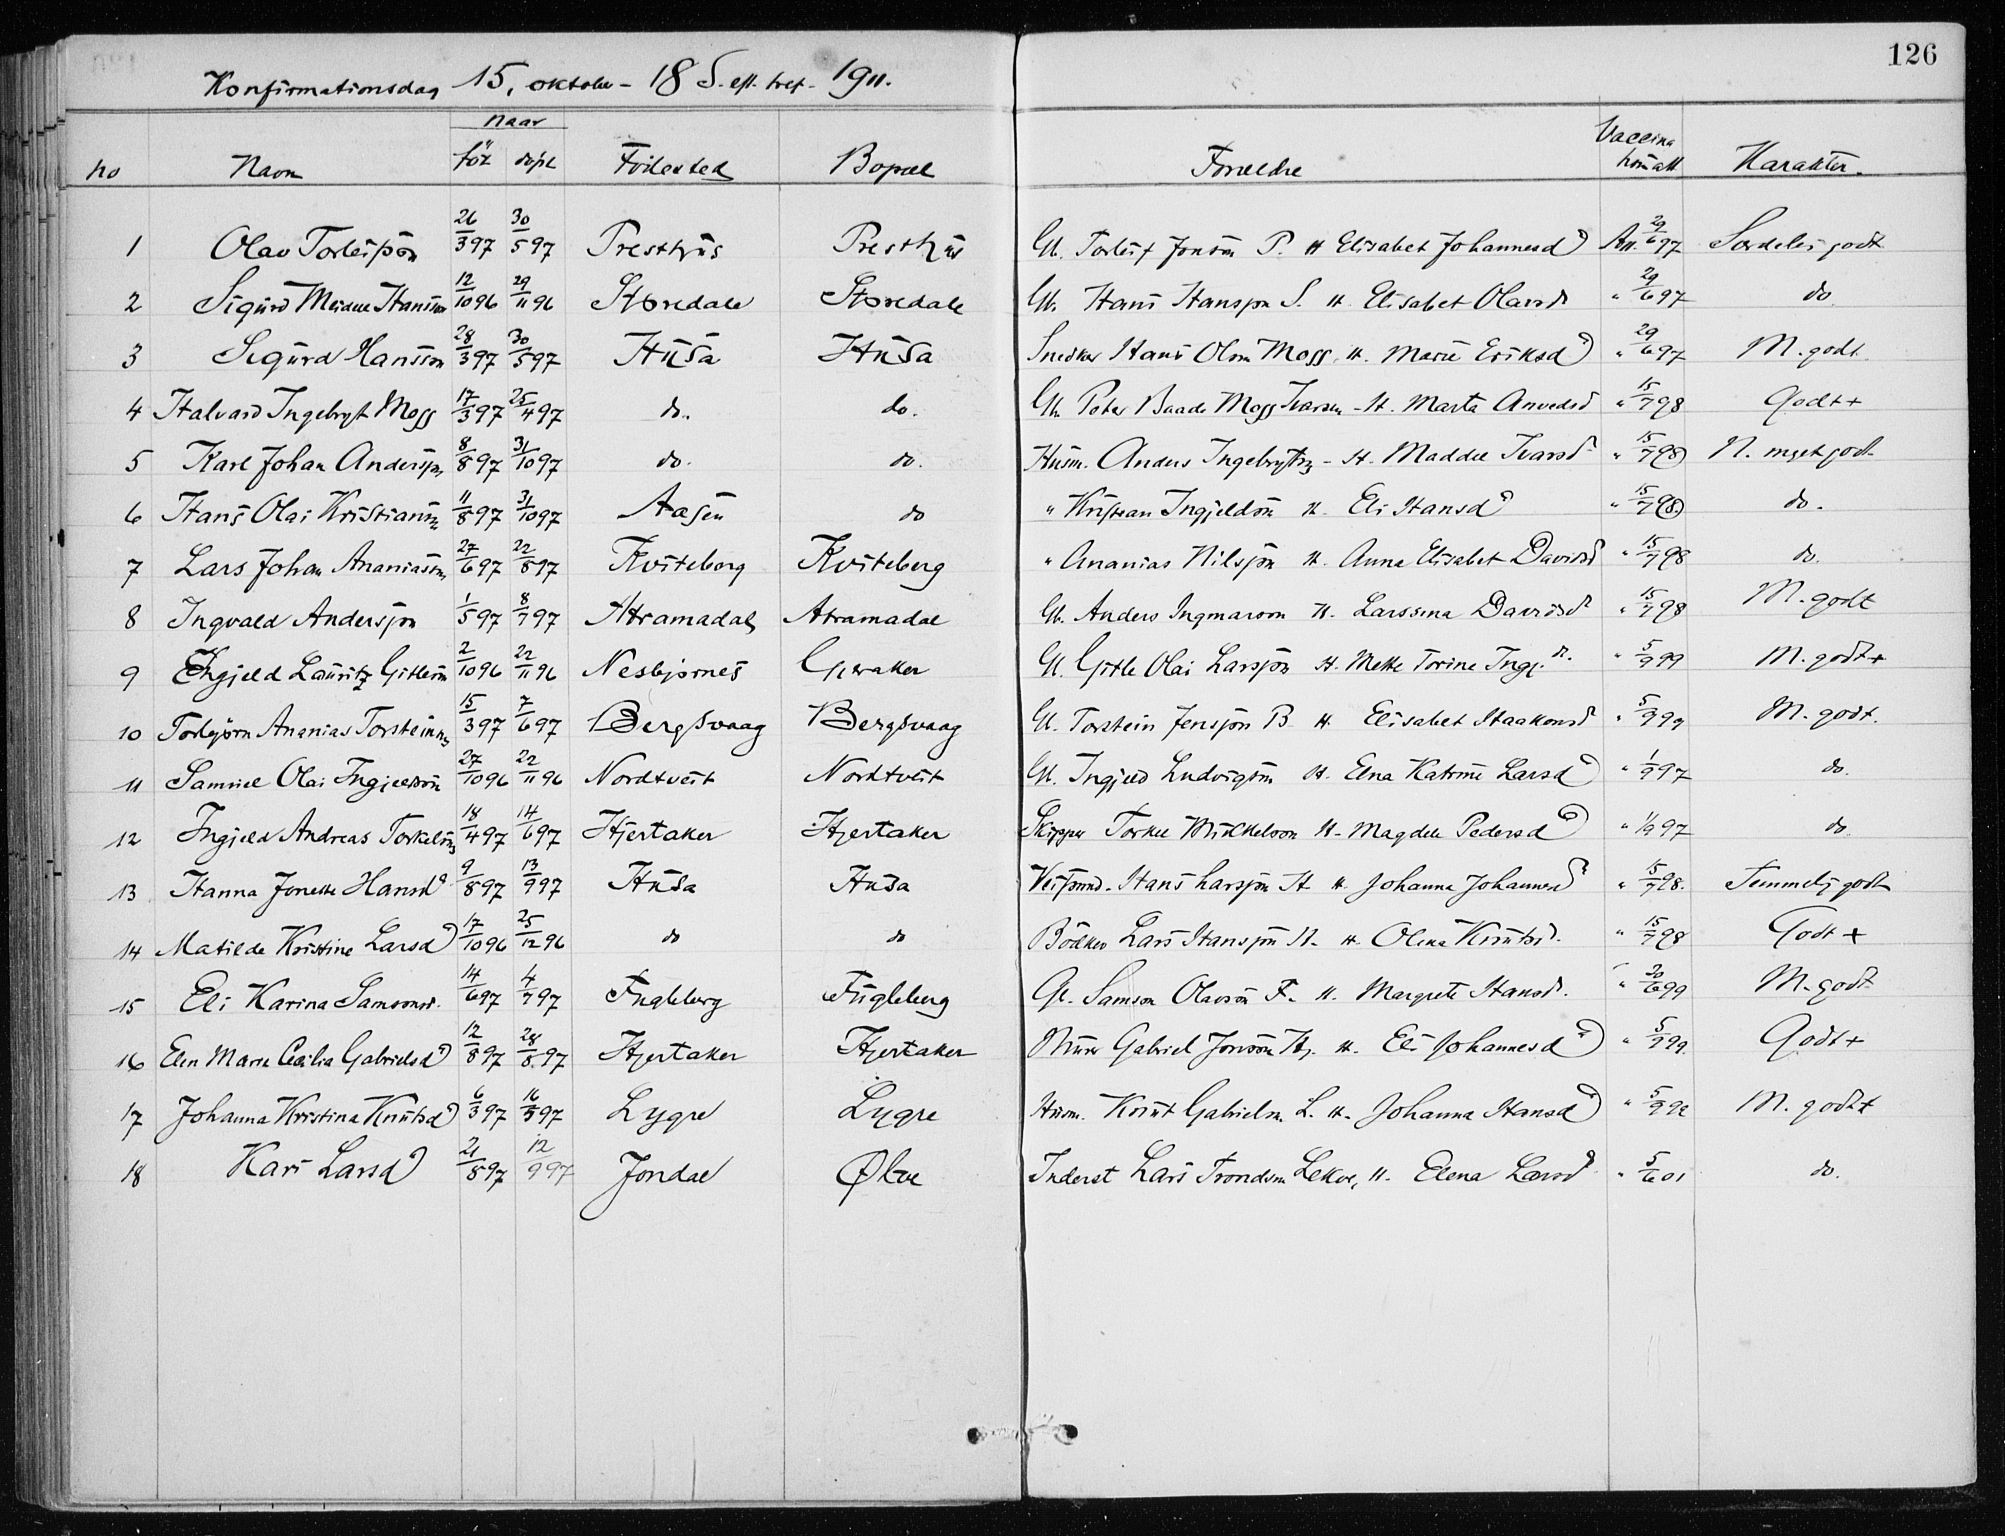 126
Konfirmationsdag 15. oktober - 18 S. eft. tref. 1911.
no Navn Naar föt döpt Födested Bopæl Forældre Vaccina Karakter.
1 Olav Torleifson 26/3 97 30/5 97 Presthus Presthus Gb. Torleif Jonsön P. H. Elisabet Johannesd Att. 29/6 97 Særdeles godt
2 Sigurd Hansson 12/10 96 29/11 96 Storedale Storedale Gb. Hans Hansson S. H. Elisabet Olavsd " 29/6 97 do
3 Sigurd Hansson 28/3 97 30/5 97 Husa Husa Snedker Hans Olson Moss H. Marie Eriksd " 29/6 97 M. godt
4 Halvard Ingebrygt Moss 17/3 97 25/4 97 do. do. Peter Baade Moss Ivarsen - H. Marta " 15/7 98 Godt +
5 Karl Johan Anderssen 8/8 97 31/10 97 do. do. Husm. Anders Ingebrytsn - H. Ivarsd " 15/7 98 N. meget godt
6 Hans Olai Kristianssn 11/8 97 31/10 97 Aasen do " Kristian Ingjeldsön H. Eli Hansd " 15/7 98 do.
7 Lars Johan Ananiassn 27/6 97 22/8 97 Kviteberg Kviteberg " Ananias Nilsson H. Anna Elisabet Davidsd " 15/7 98 do.
8 Ingvald Andersson 1/5 97 8/7 97 Atramadal Atramadal Gb. Anders Ingmarson H. Larssina Davidsd " 15/7 98 M. godt
9 Engjeld Lauritz Gitlesön 2/10 96 22/11 96 Nesbjørnes Gb. Gitle Olai Larsson H. Mette Torine Ingj.d. " 5/9 99 M. godt +
10 Torbjørn Ananias Torsteinssn 15/3 97 7/6 97 Bergsvaag Bergsvaag Gb. Torstein Jensson B H Elisabet Haakonsd " 5/9 99 M. godt.
11 Samuel Olai Ingjeldsön 27/10 96 22/11 96 Nordtveit Nordtveit Gb. Ingjeld Ludvigsön H. Elna Katrine Larsd " 1/9 97 do.
12 Ingjeld Andreas Torkelsn 18/4 97 14/6 97 Hjertaker Hjertaker Skipper Torkel Mikkelson H. Magdele Pedersd " 1/9 97 do.
13 Hanna Jonette Hansd 9/8 97 13/9 97 Husa Husa Hans Larsson H H. Johanna Johannesd " 15/7 98. Temmelig godt
14 Matilde Kristine Larsd 17/10 96 25/12 96 do do Bödker Lars Hansson H. H. Olina Knutsd. " 15/7 98 Godt +
15 Eli Karina Samsonsd. 14/6 97 4/7 97 Fugleberg Fugleberg Gb. Samson Olavsön F. H. Margrete Hansd. " 20/6 99 M. godt
16 Elen Marie Cecilia Gabrielsd 12/8 97 28/8 97 Hjertaker Hjertaker Murer Gabriel Jonsson Hj. H. Eli Johannesd " 5/9 99. Godt +
17 Johanna Kristina Knutsd 6/3 97 16/5 97 Lygre Lygre Husm. Knut Gabrielsn. L. H. Johanna Hansd " M. godt +
18 Kari Larsd 21/8 97 12/9 97 Jondal Ølve Inderst Lars Trondsn H. Elena Larsd " 5/6 01 do.